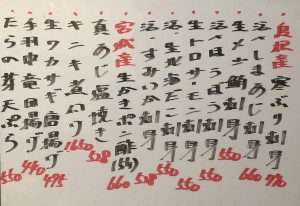 島根産 寒ぶり刺身 770
活〆しまあじ刺身 660
生メバチ鮪刺身
活〆ほうぼう刺身 550
生トロサーモン刺身 550
活・生北海だこ刺身 550
活・すみいか刺身 528
宮城産 生かきポン酢 660
真あじ塩焼き 528
キンキ煮付 1650
生ワカサギ唐揚げ 495
手羽中竜田揚げ 440
たらの芽天ぷら 550